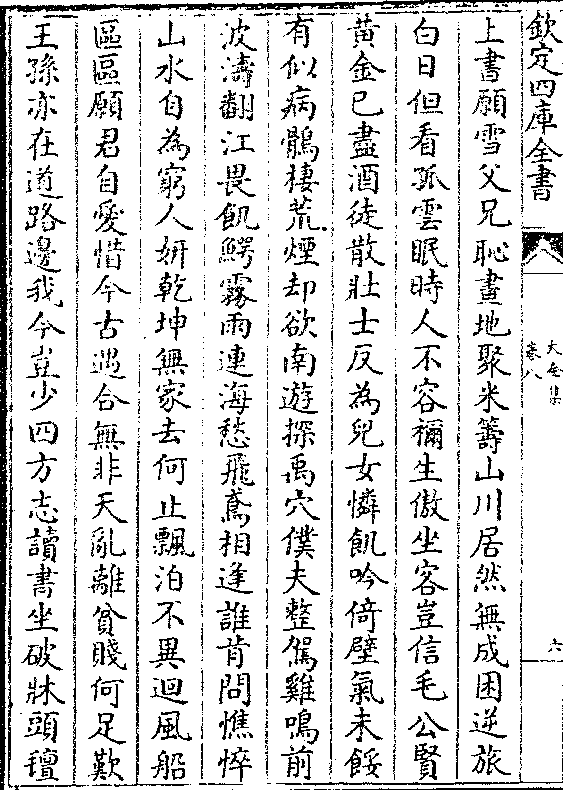 欽定四庫全書
大全集
卷八
六
上書願雪父兄恥畫地聚米籌山川居然無成困逆旅
白日但看孤雲眠時人不容禰生傲坐客豈信毛公賢
黃金已盡酒徒散壯士反為兒女憐飢吟倚壁氣未餒
有似病鶻棲荒煙却欲南遊探禹穴僕夫整駕雞鳴前
波濤翻江畏飢鰐霧雨連海愁飛鳶相逢誰肯問憔悴
山水自為窮人妍乾坤無家去何止飄泊不異迴風船
區區願君自愛惜今古遇合無非天亂離貧賤何足歎
王孫亦在道路邊我今豈少四方志讀書坐破牀頭氊